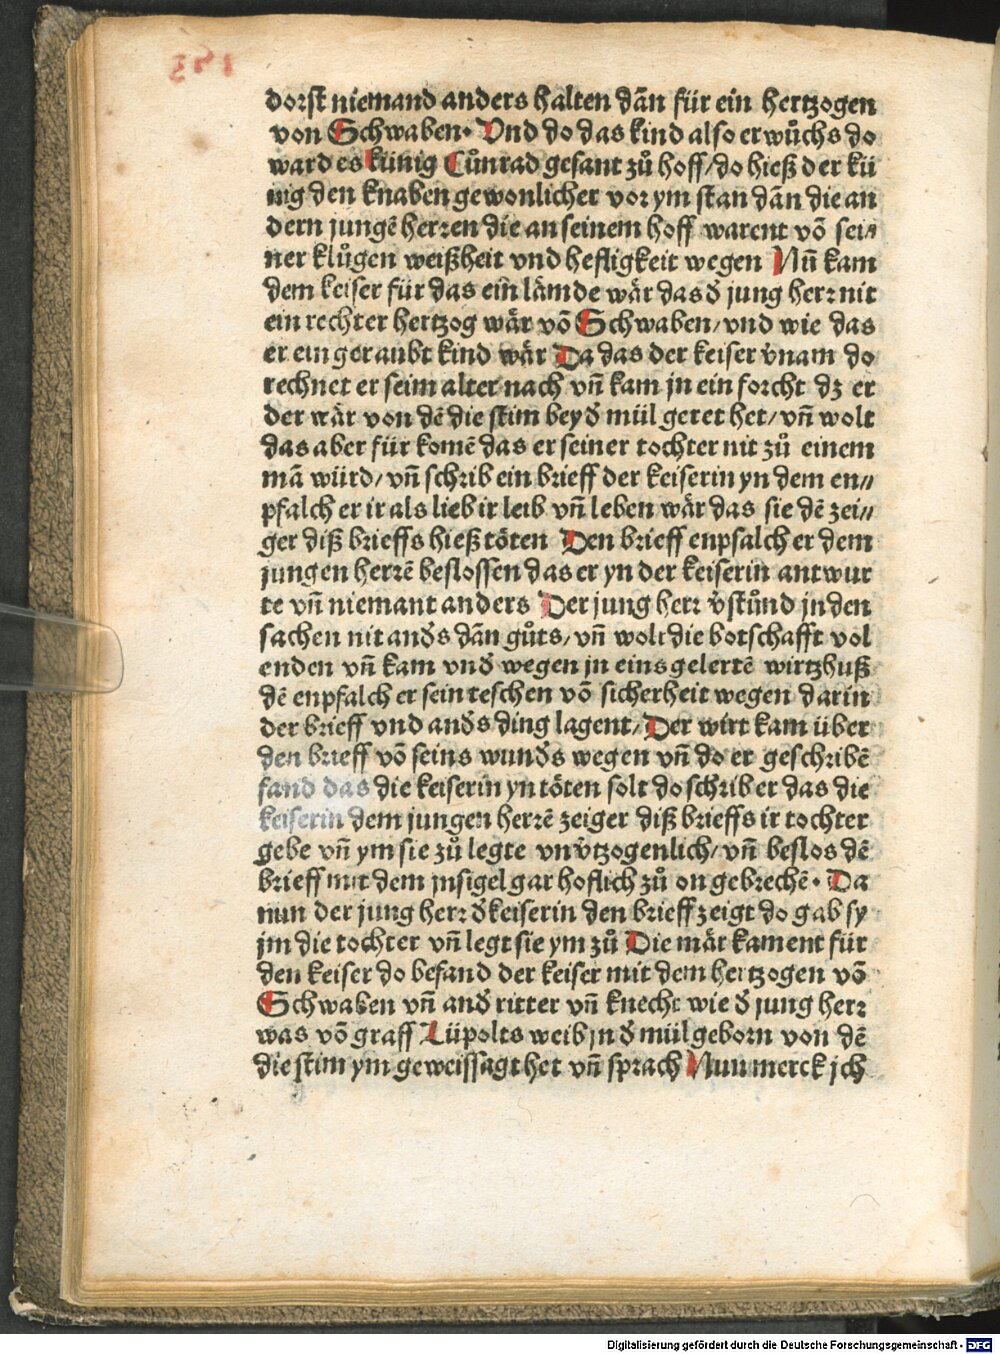 dorst niemand anders halten dãn für ein hertzogen
von Schwaben· Vnd do das kind also erwůchs do
ward es künig Cůnrad gesant zů hoff/do hieß der kü
nig den knaben gewonlicher vor ym stan dãn die an
dern jungẽ herren die an seinem hoff warent võ sei⸗
ner klůgen weißheit vnd hefligkeit wegen Nũ kam
dem keiser für das ein lämde wär das đ jung herr nit
ein rechter hertzog wär võ Schwaben/vnd wie das
er ein geraubt kind wär Da das der keiser v̾nam do
rechnet er seim alter nach vñ kam jn ein forcht dz er
der wär von dẽ die stim bey đ mül geret het/vñ wolt
das aber für komẽ das er seiner tochter nit zů einem
mã würd/vñ schrib ein brieff der keiserin yn dem en⸗
pfalch er ir als lieb ir leib vñ leben wär das sie dẽ zei⸗
ger diß brieffs hieß töten Den brieff enpfalch er dem
jungen herrẽ beslossen das er yn der keiserin antwur
te vñ niemant anders Der jung herr v̾stůnd jn den
sachen nit and̾s dãn gůts/vñ wolt die botschafft vol
enden vñ kam vnd̾ wegen jn eins gelertẽ wirtzhuß
dẽ enpfalch er sein teschen võ sicherheit wegen darin
der brieff vnd and̾s ding lagent/Der wirt kam über
den brieff võ seins wund̾s wegen vñ do er geschribẽ
fand das die keiserin yn töten solt do schrib er das die
keiserin dem jungen herrẽ zeiger diß brieffs ir tochter
gebe vñ ym sie zů legte vnv̾tzogenlich/vñ beslos dẽ
brieff mit dem jnsigel gar hoflich zů on gebrechẽ· Da
nun der jung herr đ keiserin den brieff zeigt do gab sy
jm die tochter vñ legt sie ym zů Die mär kament für
den keiser do befand der keiser mit dem hertzogen võ
Schwaben vñ and̾ ritter vñ knecht wie đ jung herr
was võ graff Lüpolts weib jn đ mül geborn von dẽ
die stim ym geweissagt het vñ sprach Nun merck jch
Digitalisierung gefördert durch die Deutsche Forschungsgemeinschaft - DFG